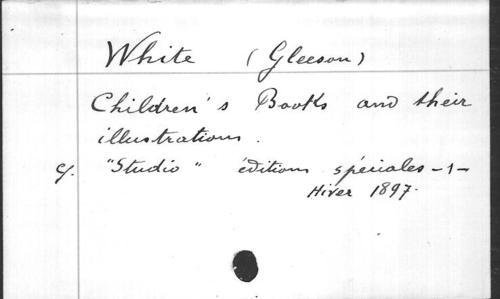 White (Gleeson)
Children's Books and their
illustrations.
cf. "Studio" éditions spéciales -1-
Hiver 1897.